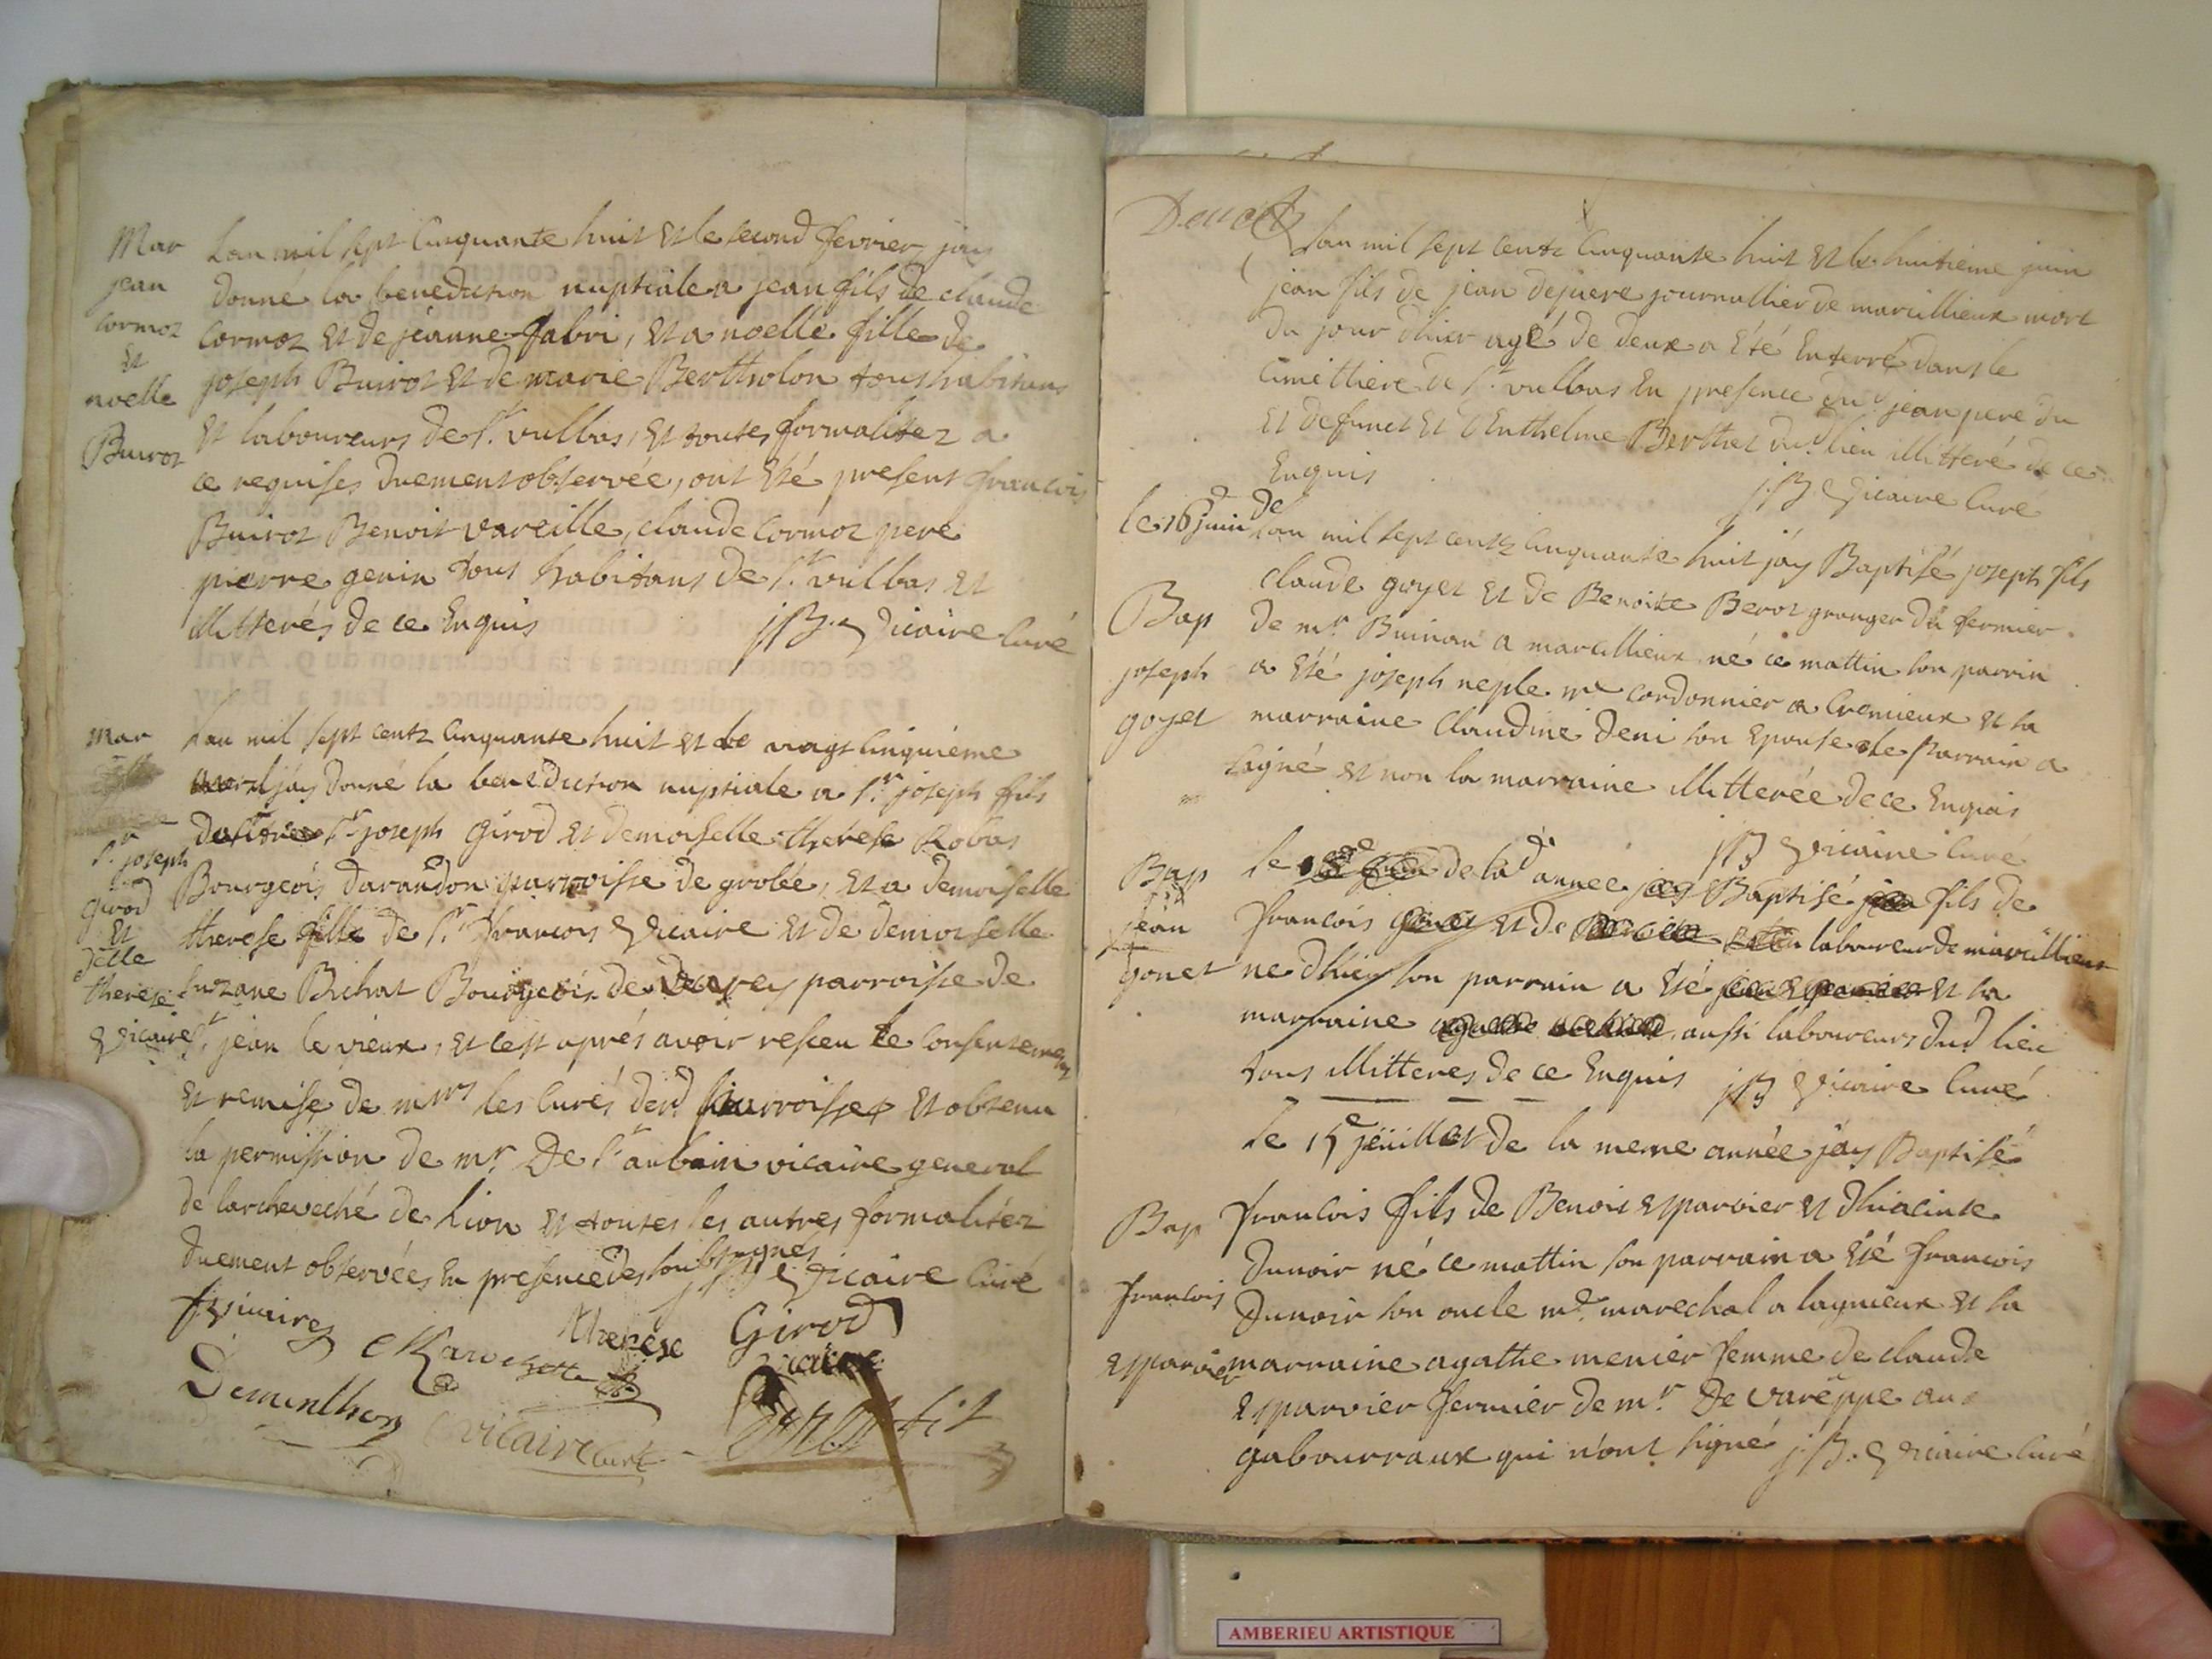 Mar
jean
cormoz
et
noelle
Buiroz
Lan mil sept Cinquante huit et le second fevrier jay
donné la benediction nuptiale a jean fils de claude
Cormoz et de jeanne fabri, et a noelle fille de
joseph Buiroz et de marie Bertholon tous habitans
et laboureurs de St. vulbas, et toutes formalitez a
ce requises duement observée, ont été present francois
Buiroz Benoit vareille, claude Cormoz pere
pierre genin tous habitans de St. vulbas et
illitterés de ce Enquis jB. Vicaire Curé
Mar
Sr. joseph
girod
et
delle
therese
Vicaire
Lan mil sept centz Cinquante huit et le vingt Cinquième
avril jay donné la benediction nuptiale a Sr. joseph fils
de Sr joseph girod et demoiselle therese Robas
Bourgeois darandon parroisse de grolée, et a demoiselle
therese fille de Sr francois Vicaire et de demoiselle
Suzane Bichat Bourgeois de Varey parroisse de
St. jean le vieux, et cest aprés avoir resceu le Consentement
et remise de mrs les Curés desd parroisses et obtenu
la permission de mr. De St aubain vicaire general
de larcheveché de Lion et toutes les autres formalitéz
duement observées En presence des soubsignés jB Vicaire Curé
fVicaire
therese Vicaire
Girod
Dementhon
vicaire Curé
Lan mil sept centz Cinquante huit et le huitieme juin
jean fils de jean dejuere journallier de marcillieux mort
du jour dhier agé de deux a été Enterré dans le
Cimettiere de St. vulbas En presence dud jean pere du
et defunct et dEnthelme Berthet dud. lieu illitteré de ce
Enquis jB Vicaire Curé
le 16 juin de
Lan mil sept centz Cinquante huit jáy Baptisé joseph fils
Bap
joseph
goyet
claude goyet et de Benoite Beroz granger du fermier
de mr. Buinan a marcillieux né ce mattin son parrin
a été joseph neple me cordonnier a Cremieux et la
marraine Claudine Deni son Epouse le Parrain a
signé et non la marraine illitterée de ce Enquis
jB Vicaire Curé
Bap
jean
gonet
le de lad année jay Baptisé fils de
francois et de laboureur de marcillieux
ne dhier son parrain a été et la
marraine aussi laboureurs dud lieu
tous illitteres de ce Enquis jB Vicaire Curé
Le 15e jeüillet de la meme année jáy Baptisé
Bap
francois
Esparvier
francois fils de Benoit Esparvier et dhiacinte
Dunoir né ce mattin son parrain a été francois
Dunoir son oncle md. marechal a lagnieux et la
marraine agathe menier femme de claude
Esparvier fermier de mr. De vareppe au
gabourraux qui n'ont signé jB. Vicaire Curé
AMBERIEU ARTISTIQUE